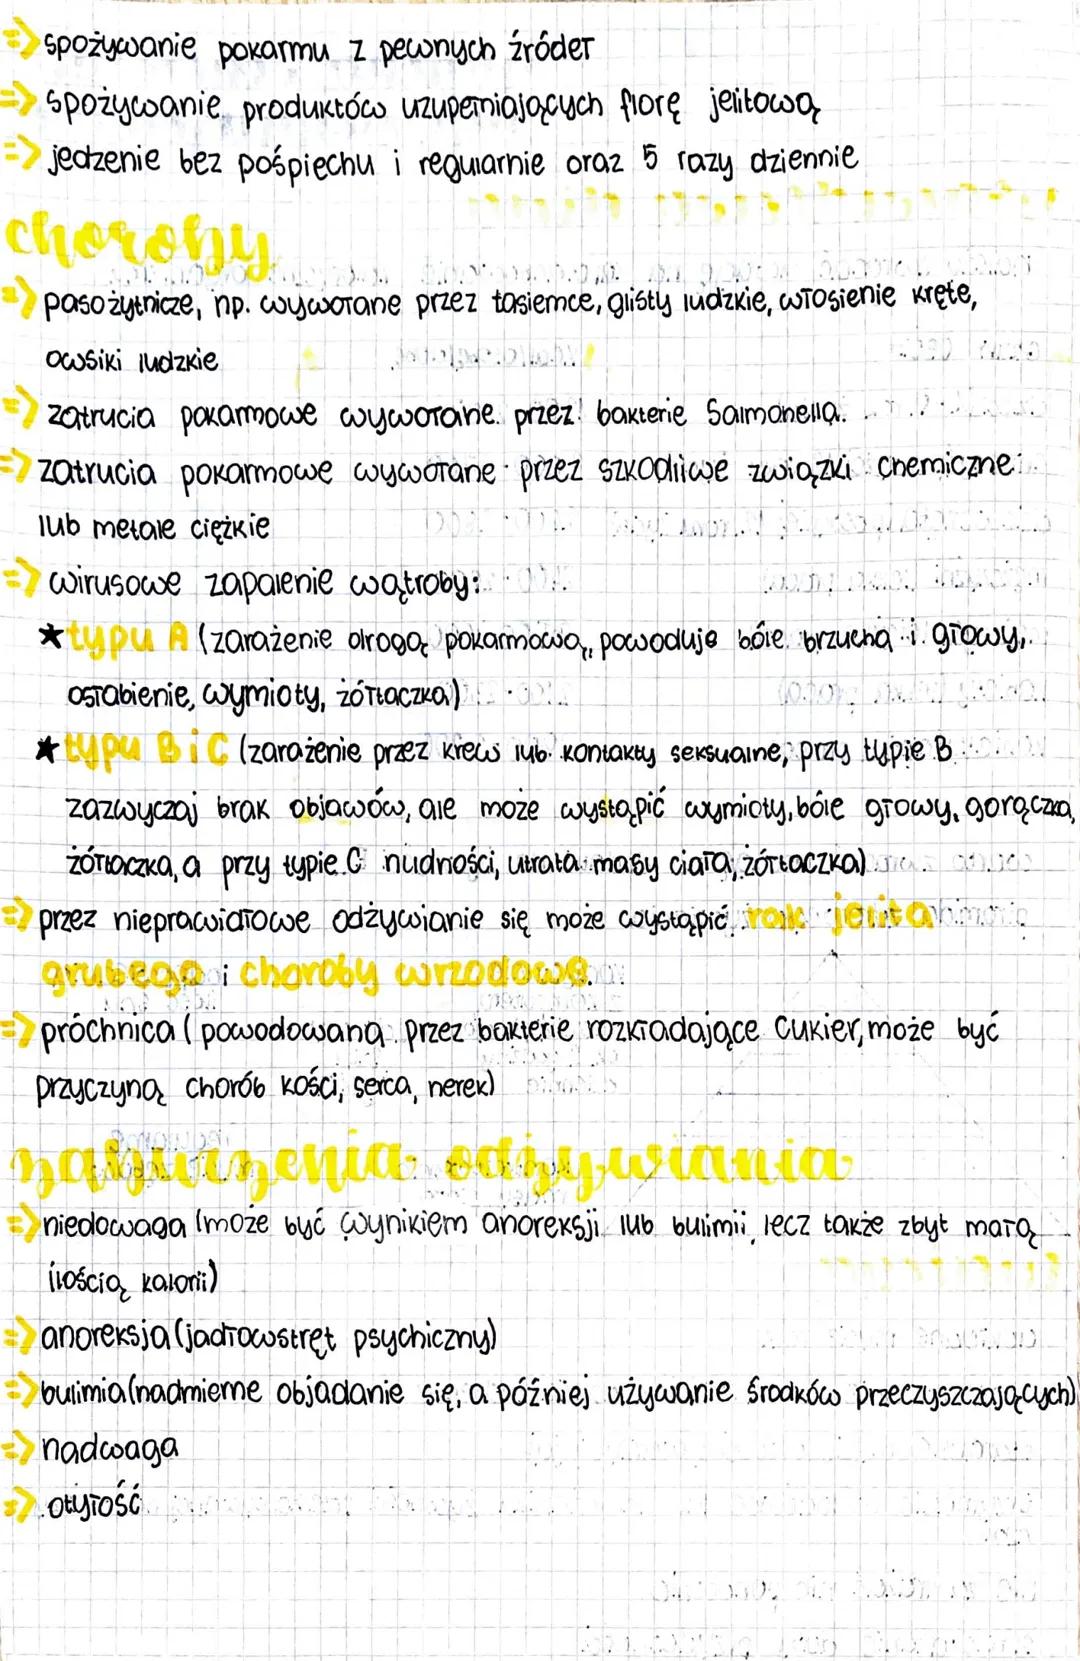 => spożywanie pokarmu z pewnych źródeł
=> spożywanie produktów uzupełniających florę jelitową
=> jedzenie bez pośpiechu i regularnie oraz 5 razy dziennie
choroby
=> pasożytnicze, np. wywołane przez tasiemce, glisty ludzkie, włosienie kręte,
owsiki ludzkie
=> zatrucia pokarmowe wywołane przez bakterie Salmonella.
=> zatrucia pokarmowe wywołane przez szkodliwe związki chemiczne
lub metale ciężkie
=> wirusowe zapalenie wątroby:
★ typu A (zarażenie drogą pokarmową, powoduje bóle brzucha i głowy,
osłabienie, wymioty, żółtaczka)
★ typu B i C (zarażenie przez krew lub kontakty seksualne, przy typie B
zazwyczaj brak objawów, ale może wystąpić wymioty, bóle głowy, gorączka,
żółtaczka, a przy typie C nudności, utrata masy ciała, żółtaczka)
=> przez nieprawidłowe odżywianie się może wystąpić rak jelita
grubego i choroby wrzodowe.
=> próchnica (powodowana przez bakterie rozkładające cukier, może być
przyczyną chorób kości, serca, nerek)
zaburzenia odżywiania
=> niedowaga (może być wynikiem anoreksji lub bulimii, lecz także zbyt małą
ilością kalorii)
=> anoreksja (jadłowstręt psychiczny)
=> bulimia (nadmierne objadanie się, a później używanie środków przeczyszczających)
=> nadwaga
=> otyłość